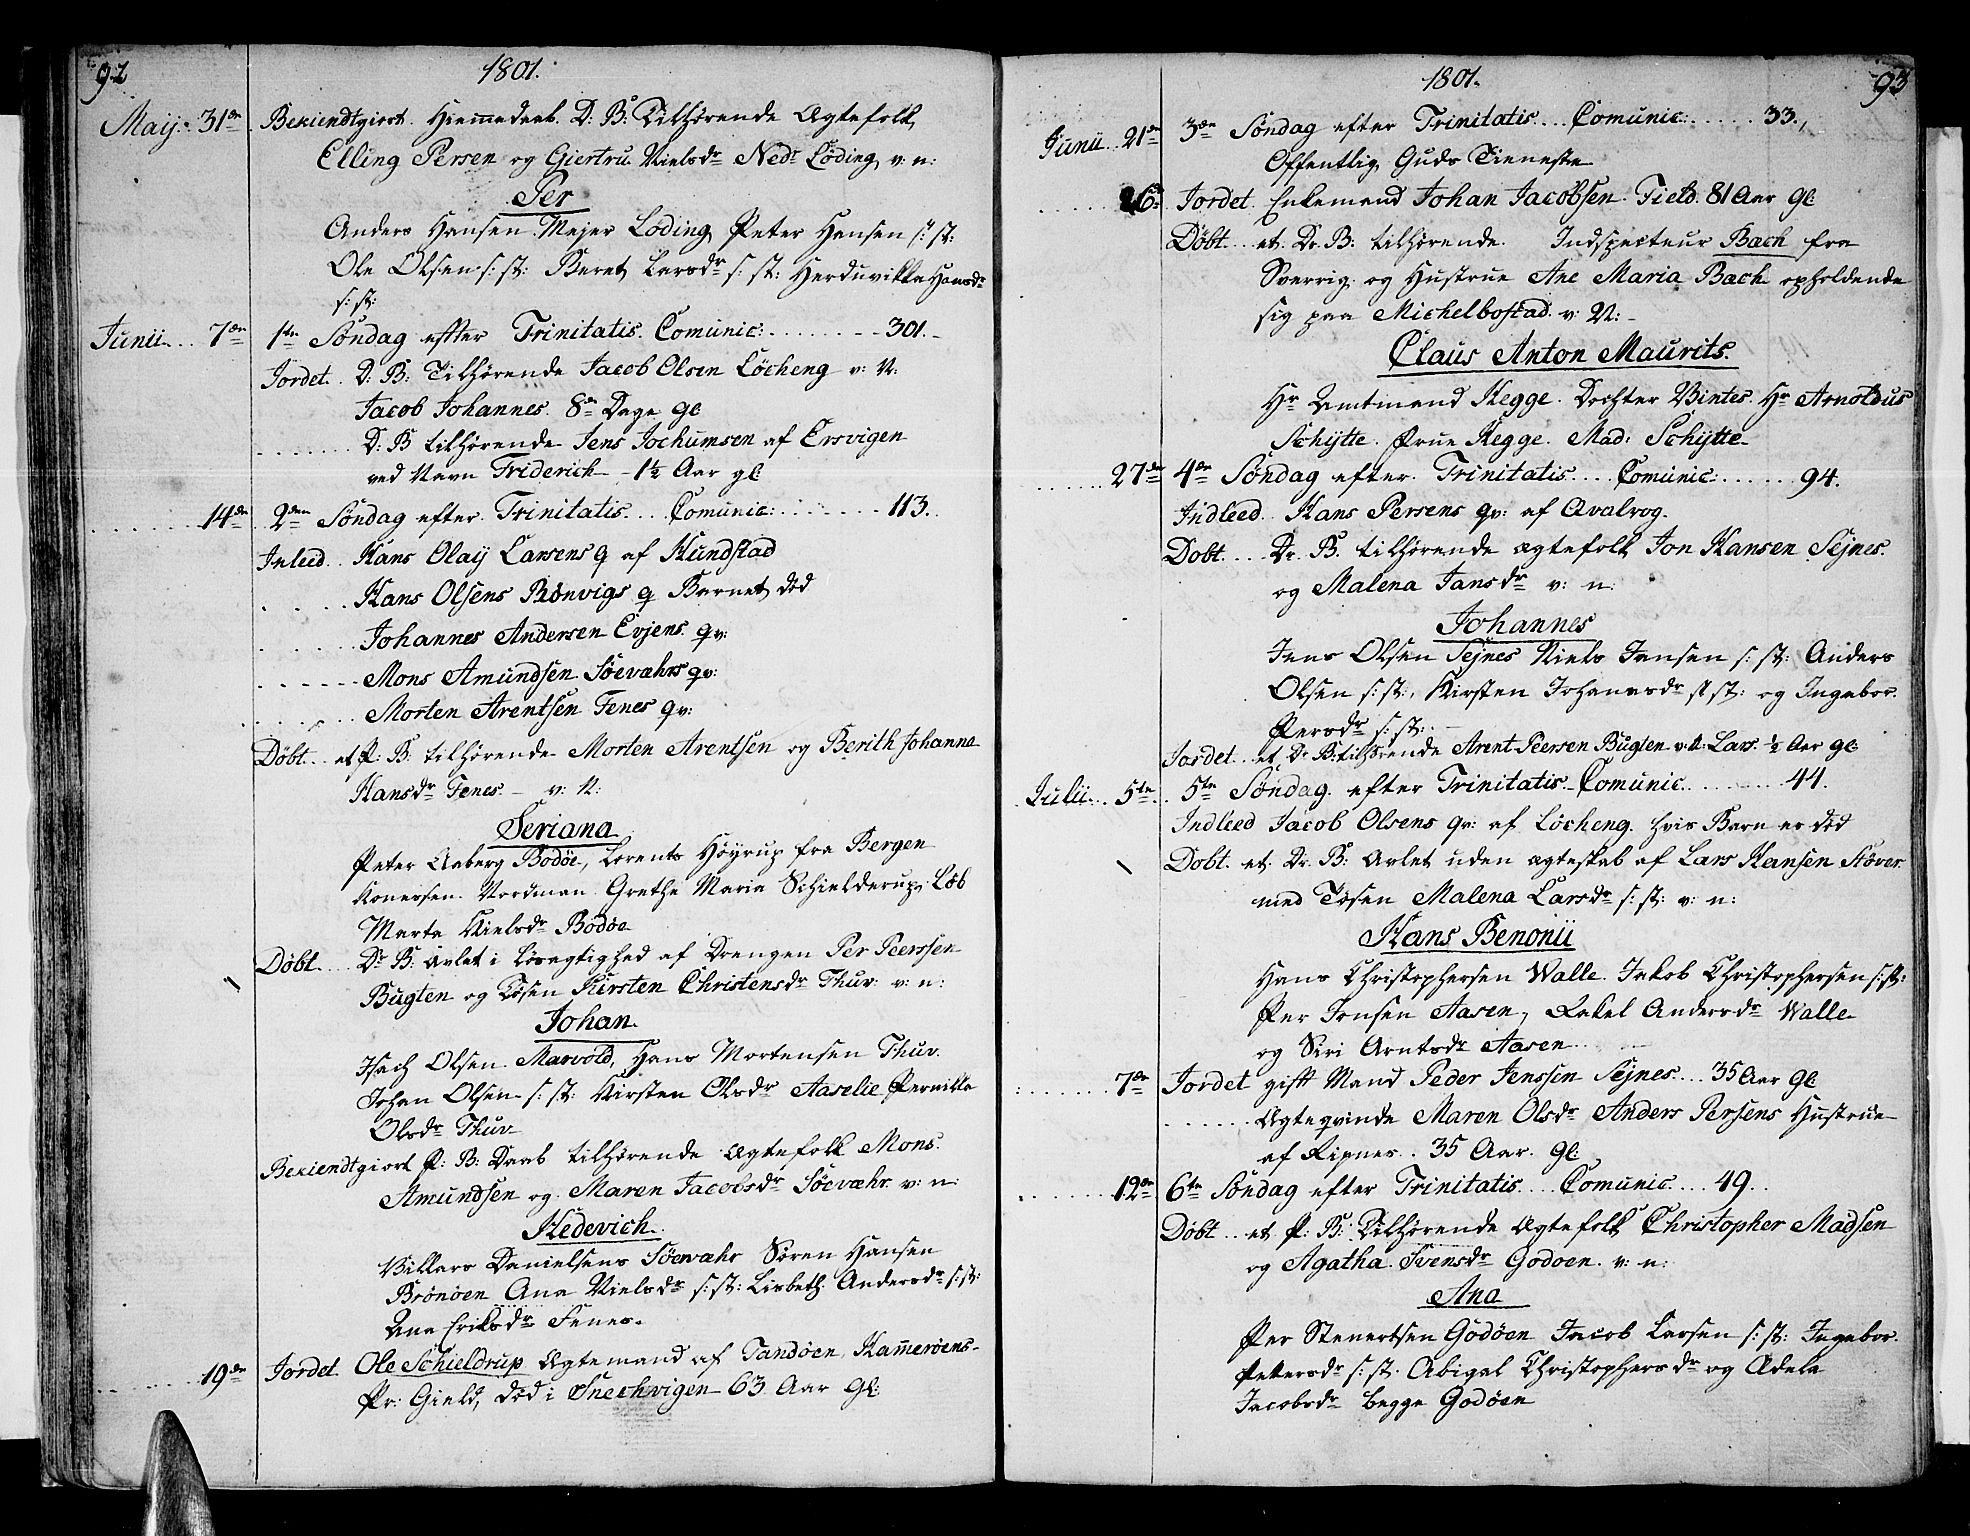 92
1801.
Maij. 31de Bekiendtgiort. Hiemmedaab. D. B: Tilhørende Ægtefolk
Elling Persen og Giertru Nielsdr Nedr Løding v: n:
Per
Anders Hansen Mejer Løding Peter Hansen s: st:
Ole Olsen s: st: Beret Larsdr s: st: Herduvikka Hansdr
s: st:
Junii 7de 1te Søndag efter Trinitatis. Comunic: 301.
Jordet. D: B: Tilhørende Jacob Olsen Løcheng v: N:
Jacob Johannes. 8te Dage gl:
D. B tilhørende Jens Jochumsen af Ersvigen
ved Navn Friderich 1½ Aar gl:
14de 2den Søndag efter Trinitatis. Comunic: 113.
Inleed. Hans Olaij Larsens q af Kundstad
Hans Olsens Rønvigs q Barnet død
Johannes Andersen Evjens qv:
Mons Amundsen Søeværs qv:
Morten Arentsen Fenes qv:
Døbt et P: B: tilhørende Morten Arentsen og Berith Johanna
Hansdr Fenes. v: N:
Seriana
Peter Aaberg Bodøe, Lorents Høyrup fra Bergen
Nordman Grethe Maria Schielderup Løb
Marta Nielsdr Bodøe
Døbt Dr B: avlet i Løsagtighed af Drengen Per Peerssen
Bugten og Tøsen Kirsten Christensdr Thuv: v: n:
Johan.
Isach Olsen Marvold, Hans Mortensen Thuv.
Johan Olsen s: st: Kirsten Olsdr Aaselie Pernilla
Olsdr Thuv
Bekiendtgiort P: B: Daab tilhørende Ægtefolk Mons
Amundsen og Maren Jacobsdr Søevæhr v: n:
Hedevich.
Villars Danielsens Søevæhr Søren Hansen
Brønøen Ana Nielsdr s: st: Lisbeth Andersdr s: st:
Ane Eriksdr Fenes.
19de Jordet Ole Schieldrup Ægtemand af Tandøen, Hammerøens
Pr: Gield, død i Snechvigen 63 Aar Gl:
93
1801.
Junii 21de 3de Søndag efter Trinitatis Comunic: 33.
Offentlig Guds Tieneste
26de Jordet. Enkemand Johan Jacobsen Field. 81 Aar gl:
Døbt et. Dr. B: tilhørende. Indspecteur Bach fra
Sverrig og Hustrue Ane Maria Bach opholdende
sig paa Michelbostad v: N:
Claus Anton Maurits.
Hr Amtmand Hegge. Dochter Bintes. Hr Arnoldus
Schÿtte. Frue Hegge. Mad: Schÿtte
27de 4de Søndag efter Trinitatis Comunic: 94.
Indleed. Hans Persens qv: af Qvalvog.
Dobt Dr. B. tilhørende Ægtefolk Jon Hansen Sejnes.
og Malena Jansdr v: n:
Johannes
Jens Olsen Sejnes Niels Jensen s: st: Anders
Olsen s: st:, Kirsten Johanesdr s: st: og Ingebor
Persdr s: st:
Jordet et Dr B: tilhørende Arent Peersen Bugten v: N: Lars. ½ Aar gl:
Julii 5te 5te Søndag efter Trinitatis. Comunic 44.
Indleed Jacob Olsens qv: af Løcheng. hvis Barn er død
Dobt et. Dr. B: Avlet uden Ægteskab af Lars Hansen Støver
med Tøsen Malena Larsdr s: st: v: n:
Hans Benonii
Hans Christophersen Walle. Jakob Christophersen s: st:
Per Jensen Aasen, Rakel Andersdr Walle
og Siri Arntsdr Aasen
7de Jordet gift Mand Peder Jenssen Sejnes 35 Aar Gl:
Ægteqvinde Maren Olsdr Anders Persens Hustrue
af Ripnes. 35 Aar. gl:
12de 6te Søndag efter Trinitatis Comunic. 49.
Døbt et P: B: Tilhørende Ægtefolk Christopher Madsen
og Agatha Svensdr Godoen v: n:
Ana
Per Stenertsen Godøen Jacob Larsen s: st: Ingebor
Petersdr s: st: Abigal Christophersdr og Adela
Jacobsdr begge Godøen